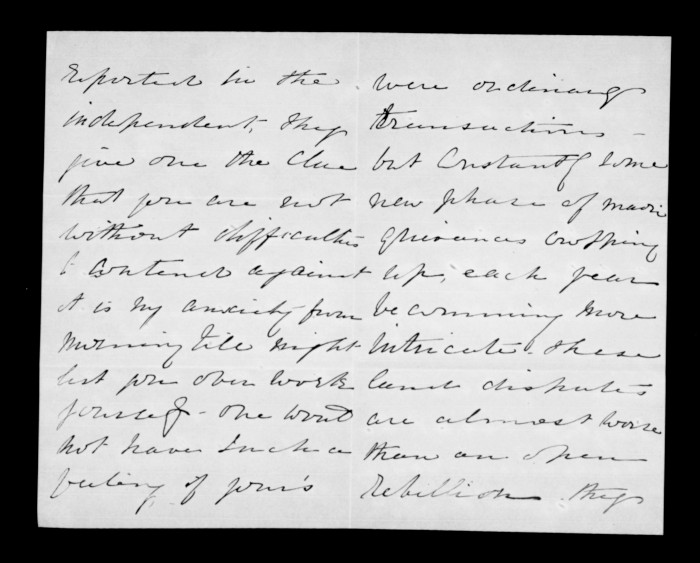 reported in the
independent, they
give one the Clue
that you are not
without difficulties
to contend against
it is my anxiety from
morning till night
lest you over work
yourself - one wou'd
not have such a
feeling if you's
were ordinary
transactions -
but Constantly some
new phase of maori
grievances cropping
up, each year
becomming more
intricate. these
land disputes
are almost worse
than an open
rebellion they